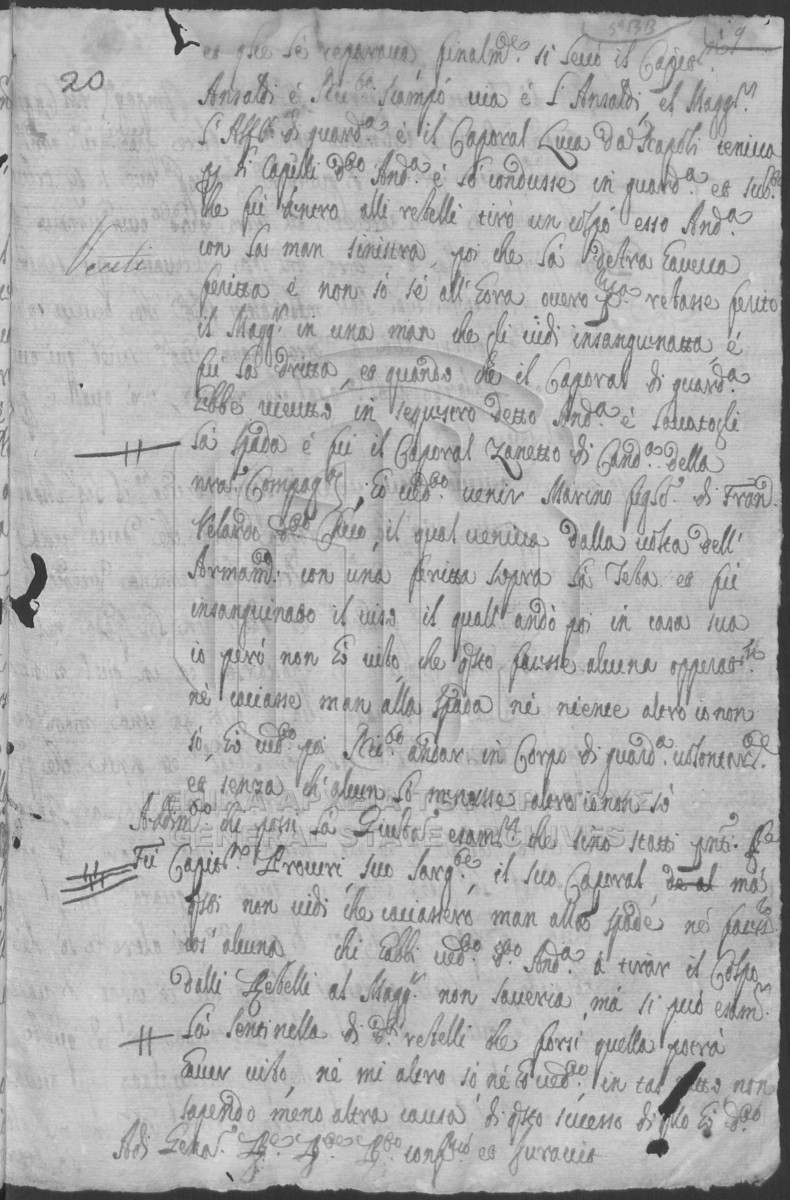 20
et che se reparava finalm.te si levò il Capit.o
Ansaldi é scampó via é l'Ansaldi, el Magg.r
l'Alf.r di guard.a é il Caporal Luca Da Napoli teniva
li Capelli d.to And.a é lo condusse in guard.a et sub.o
che fu dentro alli rebelli tirò un colpo esso And.a
con la man sinistra, poi che la destra haveva
ferita é non só sé all'hora overo p.a restasse ferito
il Magg.r in una man che gli vidi insanguinatta, é
fu la dritta, et quando che il Caporal di guard.a
hebbe ricevuto in sequstro detto And.a é levatogli
la spada é fu il Caporal Zanetto di Cand.a della
nra Compag.a, Ho ved.to venir Marino figlio di Fran.
Velardo d.to Chico, il qual veniva dalla volta dell'
Armam.to con una feritta sopra la Testa et fu
insanguinado il viso il quall andó poi in casa sua
io peró non Hó visto, che q.sto facesse alcuna operat.ne
né caciasse man alla spada né niente altro io non
só, Hó ved.to poi andar in Corpo di guard.a volontar.te
et senza ch'alcun lo menasse altro io non só
Adim.to che possi la Giustitia esam.r che sino statti pnti.
Fú Capit.o Provieri, suo Sarg.te, il suo Caporal de al má
q.sti non vidi che caciassero man alla spade né facess.
cos' alcuna chi habbi ved.to d.to And.a á tirar il Colpo
dalli Rebelli al Magg.r non saveria, má si può esam.r
la sentinella di d.ti rebelli che forsi quella potrá
haver visto, né mi altro só né hó ved.to in tal fatto non
sapendo meno altra causa di q.sto sucesso di q.llo hó d.to
Adi Gen.a conf.to et juravit
ΓΕΝΙΚΑ ΑΡΧΕΙΑ ΤΟΥ ΚΡΑΤΟΥΣ
GENERAL STATE ARCHIVES